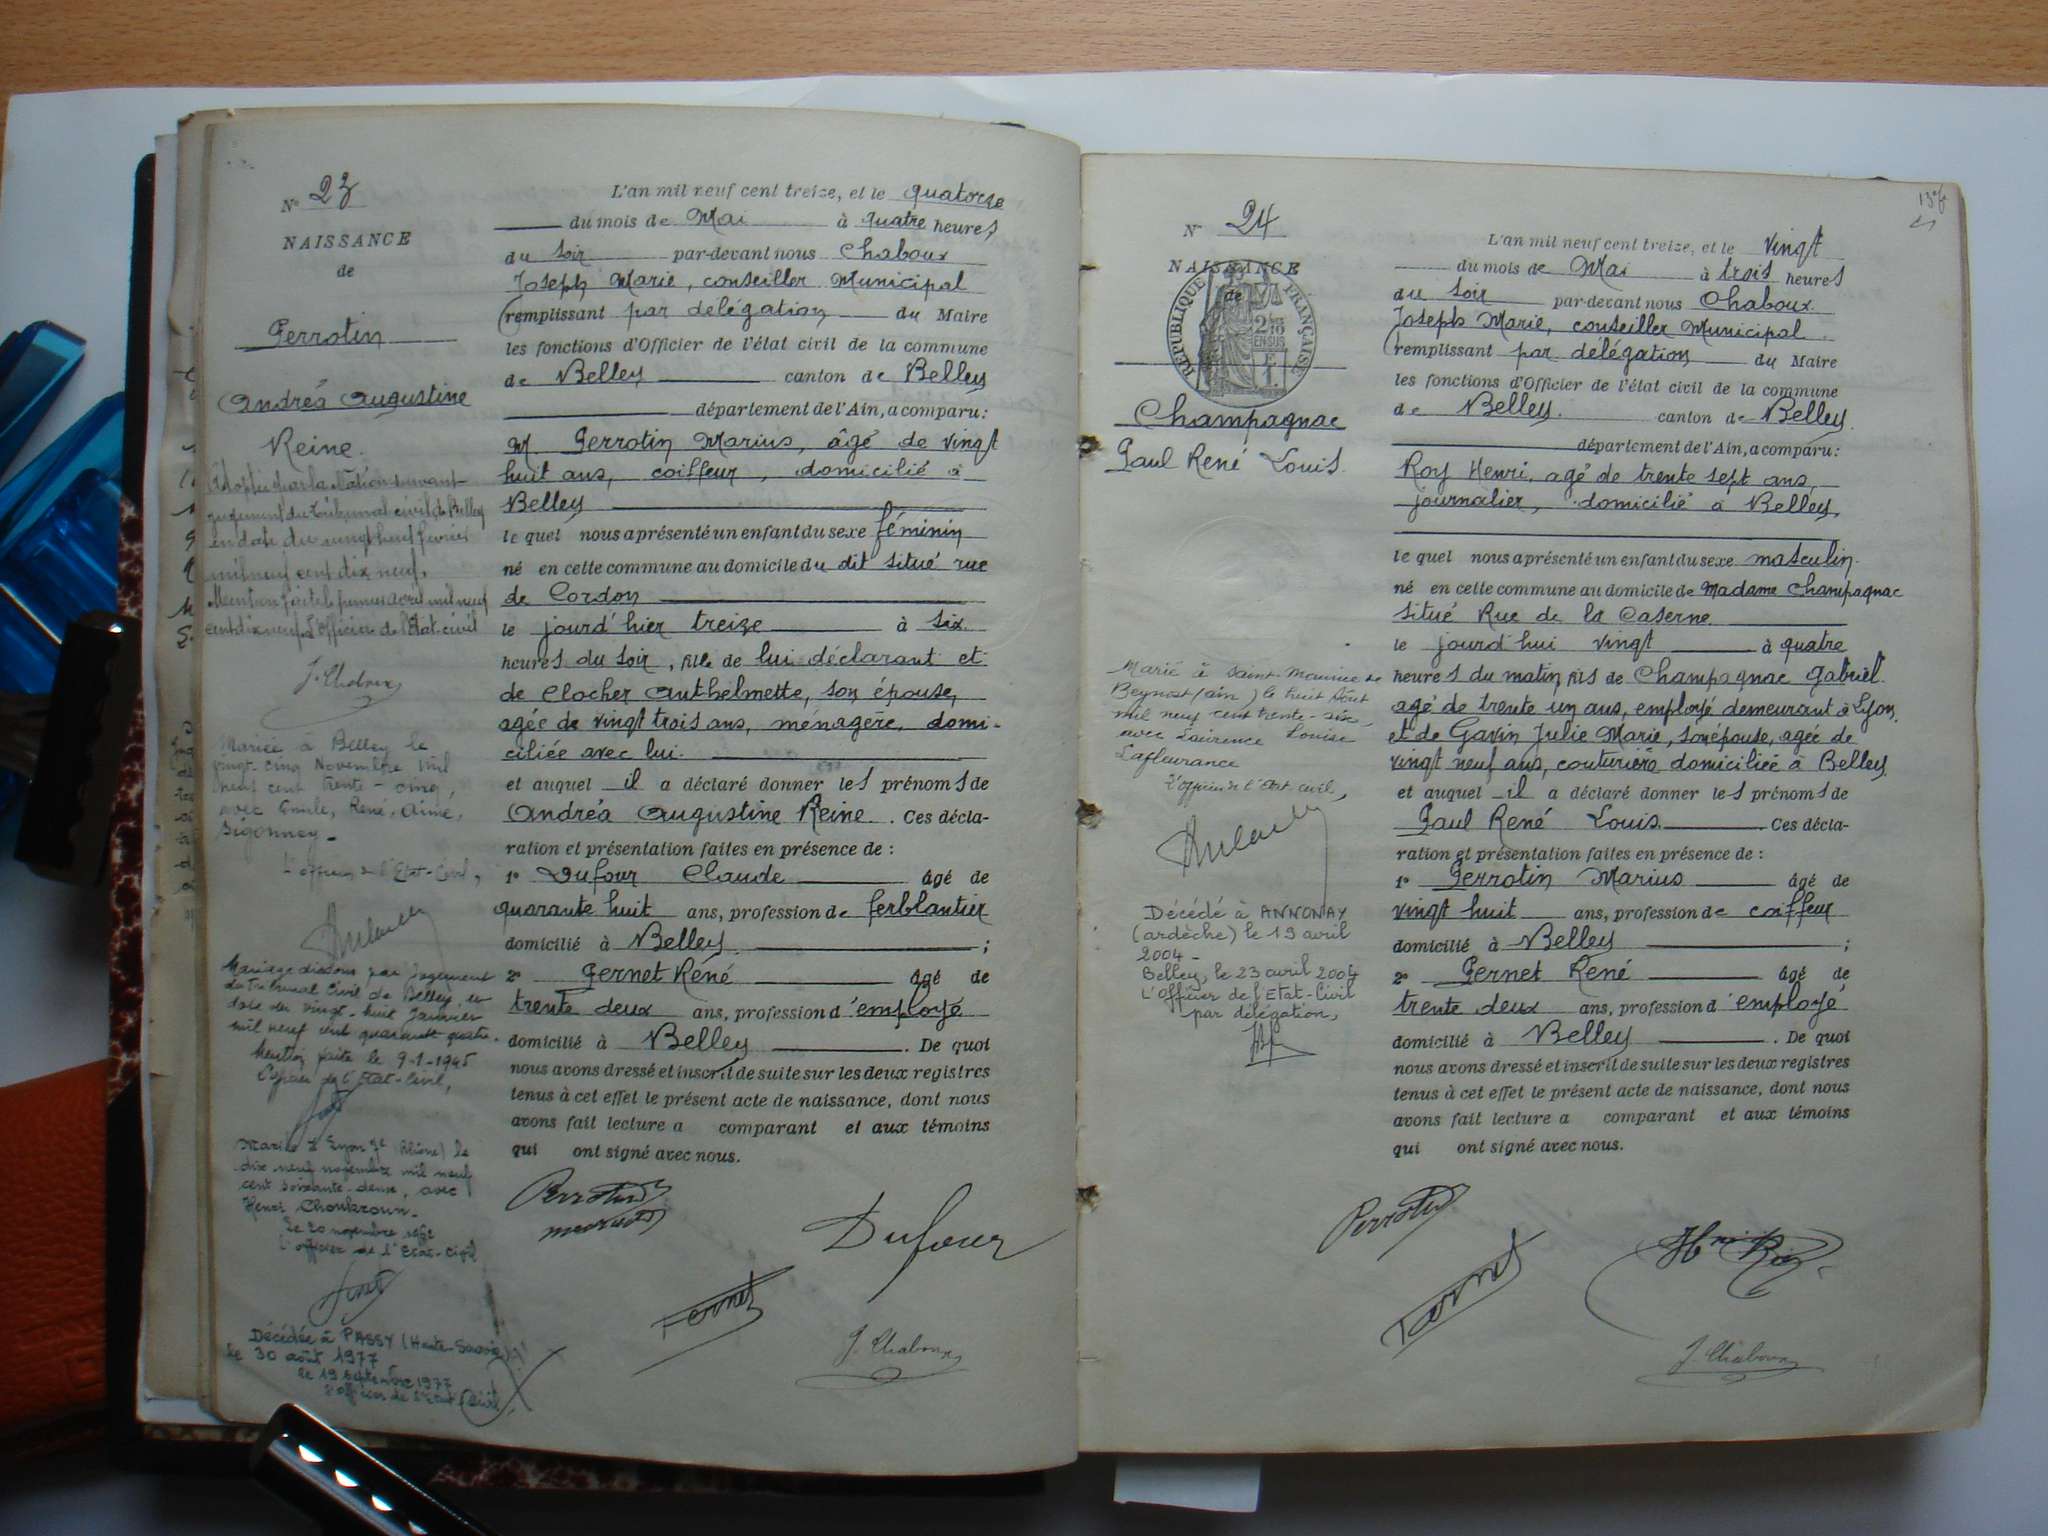 Nº 23
NAISSANCE
de
Perrotin
Andréa Augustine
Reine.
Adoptée par la Nation suivant
jugement du Tribunal civil de Belley
en date du vingt neuf février
mil neuf cent dix neuf.
Mention faite le premier avril mil neuf
cent dix neuf. L'Officier de l'état civil
J. Chaboux
Mariée à Belley le
vingt-cinq Novembre mil
neuf cent trente-cinq,
avec Emile, René, Aimé,
Bigonney.
L'officier de l'Etat-Civil,
Mariage dissous par jugement
du Tribunal Civil de Belley, en
date du vingt-huit Janvier
mil neuf cent quarante quatre.
Mention faite le 9-1-1945
L'officier de l'Etat-Civil,
Mariée à Lyon 7e (Rhône) le
dix neuf novembre mil neuf
cent soixante-deux, avec
Henri Choukroun.
Le 20 novembre 1962
L'officier de l'Etat-Civil
Décédée à PASSY (Haute-Savoie)
le 30 août 1977
le 19 septembre 1977
l'officier de l'Etat Civil,
L'an mil neuf cent treize, et le quatorze
du mois de Mai à quatre heures
du soir par-devant nous Chaboux
Joseph Marie, conseiller Municipal
(remplissant par délégation du Maire
les fonctions d'Officier de l'état civil de la commune
de Belley canton de Belley
département de l'Ain, a comparu:
M. Perrotin Marius, âgé de vingt
huit ans, coiffeur, domicilié à
Belley
le quel nous a présenté un enfant du sexe féminin
né en cette commune au domicile du dit situé rue
de Cordon
le jourd'hier treize à six
heures du soir, fille de lui déclarant et
de Clocher Anthelmette, son épouse,
agée de vingt trois ans, ménagère, domi-
ciliée avec lui.
et auquel il a déclaré donner les prénoms de
Andréa Augustine Reine. Ces décla-
ration et présentation faites en présence de :
1º Dufour Claude âgé de
quarante huit ans, profession de ferblantier
domicilié à Belley ;
2º Pernet René âgé de
trente deux ans, profession d'employé
domicilié à Belley. De quoi
nous avons dressé et inscrit de suite sur les deux registres
tenus à cet effet le présent acte de naissance, dont nous
avons fait lecture a comparant et aux témoins
qui ont signé avec nous.
Perrotin
marius
Dufour
Pernet
J. Chaboux
Nº 24
NAISSANCE
de
RÉPUBLIQUE FRANÇAISE
Champagnac
Paul René Louis.
Marié à Saint-Maurice de
Beynost (ain) le huit Août
mil neuf cent trente-six,
avec Laurence Louise
Lafleurance
L'officier de l'Etat civil,
Décédé à ANNONAY
(ardèche) le 19 avril
2004 -
Belley, le 23 avril 2004
L'Officier de l'Etat-Civil
par délégation,
L'an mil neuf cent treize, et le vingt
du mois de Mai à trois heures
du soir par-devant nous Chaboux
Joseph Marie, conseiller Municipal
(remplissant par délégation du Maire
les fonctions d'Officier de l'état civil de la commune
de Belley. canton de Belley.
département de l'Ain, a comparu:
Roy Henri, agé de trente sept ans,
journalier, domicilié à Belley,
le quel nous a présenté un enfant du sexe masculin
né en cette commune au domicile de Madame Champagnac
situé Rue de la Caserne
le jourd'hui vingt à quatre
heures du matin, fils de Champagnac Gabriel
agé de trente un ans, employé demeurant à Lyon,
et de Gavin Julie Marie, son épouse, agée de
vingt neuf ans, couturière domiciliée à Belley
et auquel il a déclaré donner les prénoms de
Paul René Louis. Ces décla-
ration et présentation faites en présence de :
1º Perrotin Marius âgé de
vingt huit ans, profession de coiffeur
domicilié à Belley ;
2º Pernet René âgé de
trente deux ans, profession d'employé
domicilié à Belley. De quoi
nous avons dressé et inscrit de suite sur les deux registres
tenus à cet effet le présent acte de naissance, dont nous
avons fait lecture a comparant et aux témoins
qui ont signé avec nous.
Perrotin
Pernet
Hri Roy
J. Chaboux